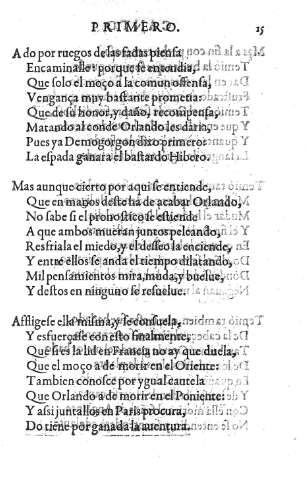 PRIMERO. 15
A do por ruegos de las fadas piensa
Encaminalle: porque se entendia,
Que solo el moço a la comun offensa,
Vengança muy bastante prometia:
Que de su honor, y daño, recompensa,
Matando al conde Orlando les daria,
Pues ya Demogorgon dixo primero:
La espada ganara el bastardo Hibero.
Mas aunque cierto por aqui se entiende,
Que en manos desto ha de acabar Orlando,
No sabe si el pronostico se estiende
A que ambos mueran juntos peleando,
Resfriala el miedo, y el desseo la enciende,
Y entre ellos se anda el tiempo dilatando,
Mil pensamientos mira, muda, y buelue,
Y destos en ninguno se resuelue.
Affligese ella misma, y se consuela,
Y esfuerçase con esto finalmente,
Que si es la lid en Francia no ay que duela,
Que el moço a de morir en el Oriente:
Tambien conosce por ygual cautela
Que Orlando a de morir en el Poniente:
Y assi juntallos en Paris procura,
Do tiene por ganada la auentura.